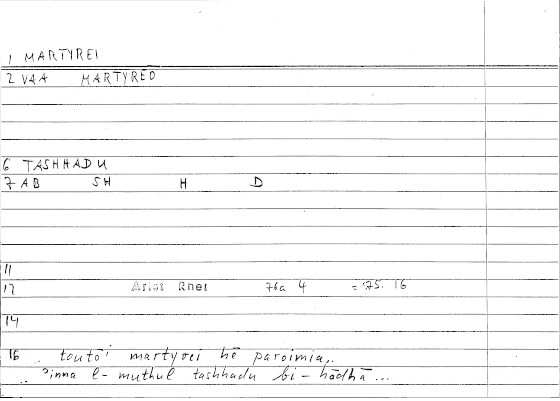 1 MARTYREI
2 VAA MARTYREŌ
6 TASHHADU
7 AB SH H D
11
12 Arist Rhet 76a 4 = 75. 16
14
16 .. toutōi martyrei hē paroimia,.
.. ʾinna l-muthul tashhadu bi-hādhā...